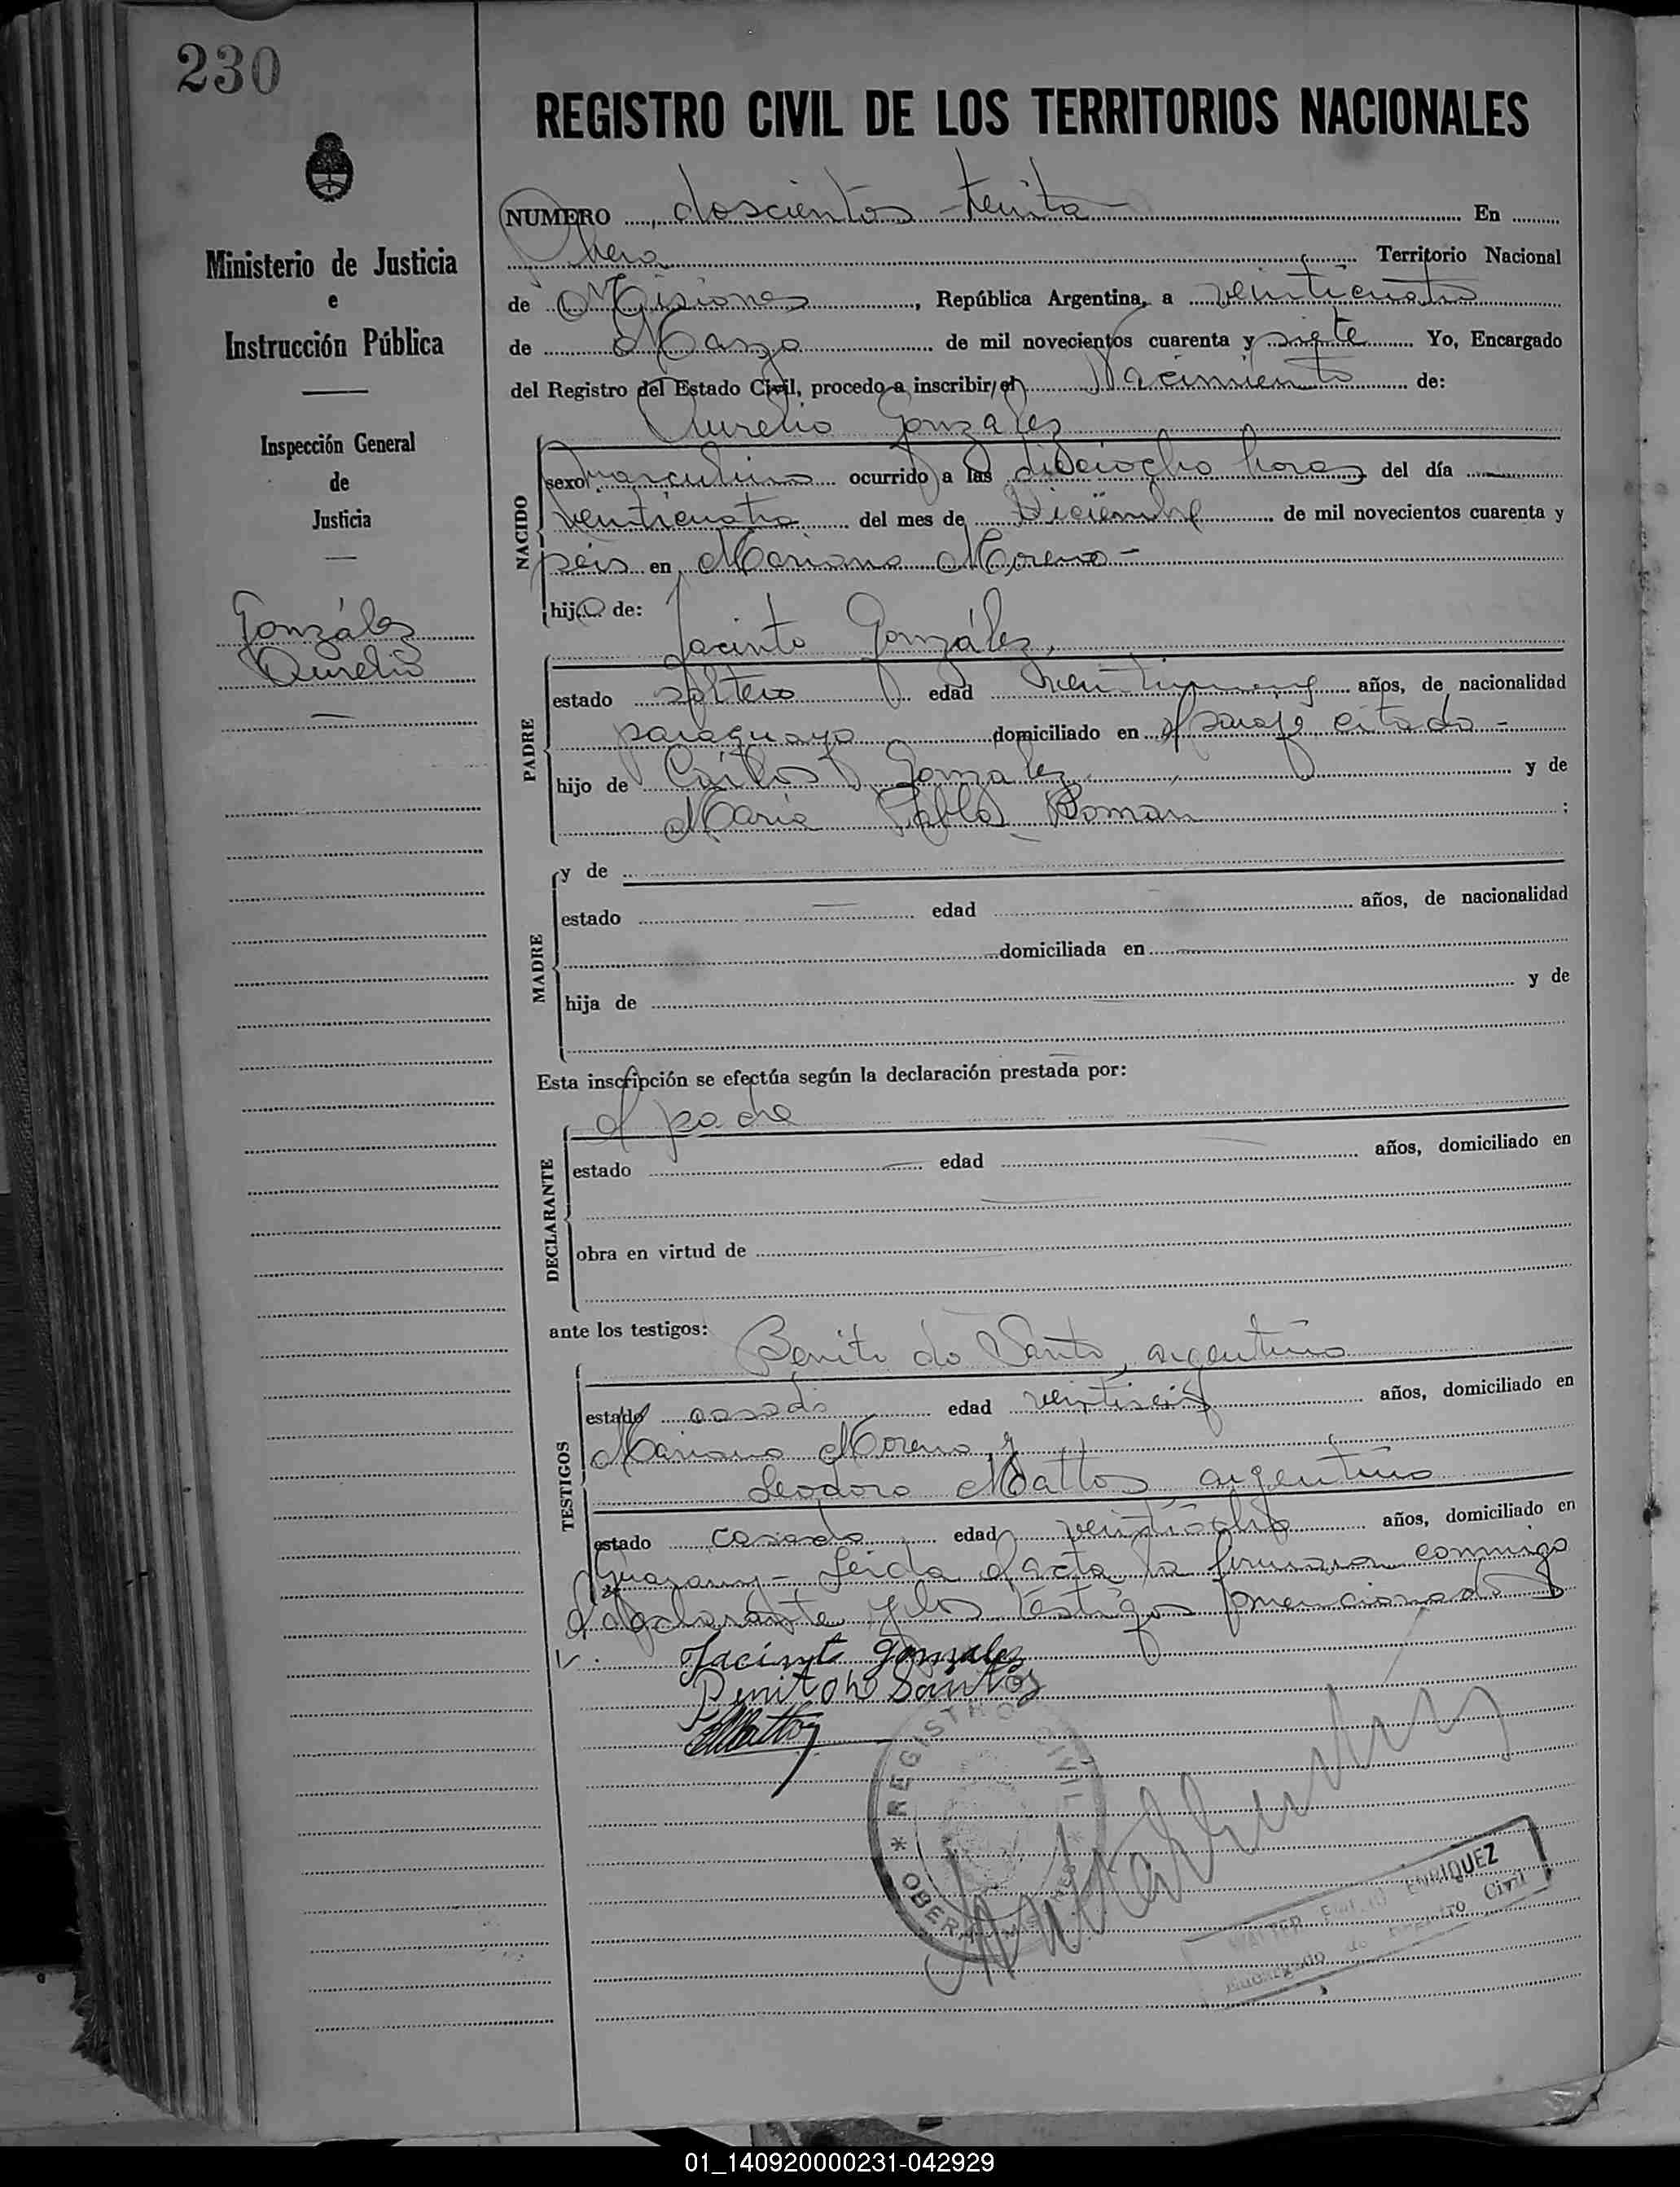 230
REGISTRO CIVIL DE LOS TERRITORIOS NACIONALES
Ministerio de Justicia
e
Instrucción Pública
Inspección General
de
Justicia
González
Aurelio
NUMERO doscientos treinta En
Obera Territorio Nacional
de Misiones, República Argentina, a veinticuatro
de Marzo de mil novecientos cuarenta y siete Yo, Encargado
del Registro del Estado Civil, procedo a inscribir el Nacimiento de:
Aurelio Gonzalez
NACIDO
sexo masculino ocurrido a las dieciocho horas del día
veinticuatro del mes de Diciembre de mil novecientos cuarenta y
seis en Mariano Moreno-
hijo de:
Jacinto González,
PADRE
estado soltero edad años, de nacionalidad
paraguaya domiciliado en el paraje citado-
hijo de Carlos Gonzalez y de
Maria Pabla Roman ;
MADRE
y de
estado edad años, de nacionalidad
domiciliada en
hija de y de
Esta inscripción se efectúa según la declaración prestada por:
el padre
DECLARANTE
estado edad años, domiciliado en
obra en virtud de
ante los testigos:
Benito do Santo, argentino
TESTIGOS
estado casado edad veintiseis años, domiciliado en
Mariano Moreno y
Leodoro Mattos argentino
estado casado edad veintiocho años, domiciliado en
Guarany- Leida el acta la firmaron conmigo
el declarante y los testigos mencionados
Jacinto gonzalez
Benito do Santos
Mattos
* REGISTRO CIVIL * OBERA
WALTER EMILIO ENRIQUEZ
Encargado de Registro Civil
01_140920000231-042929